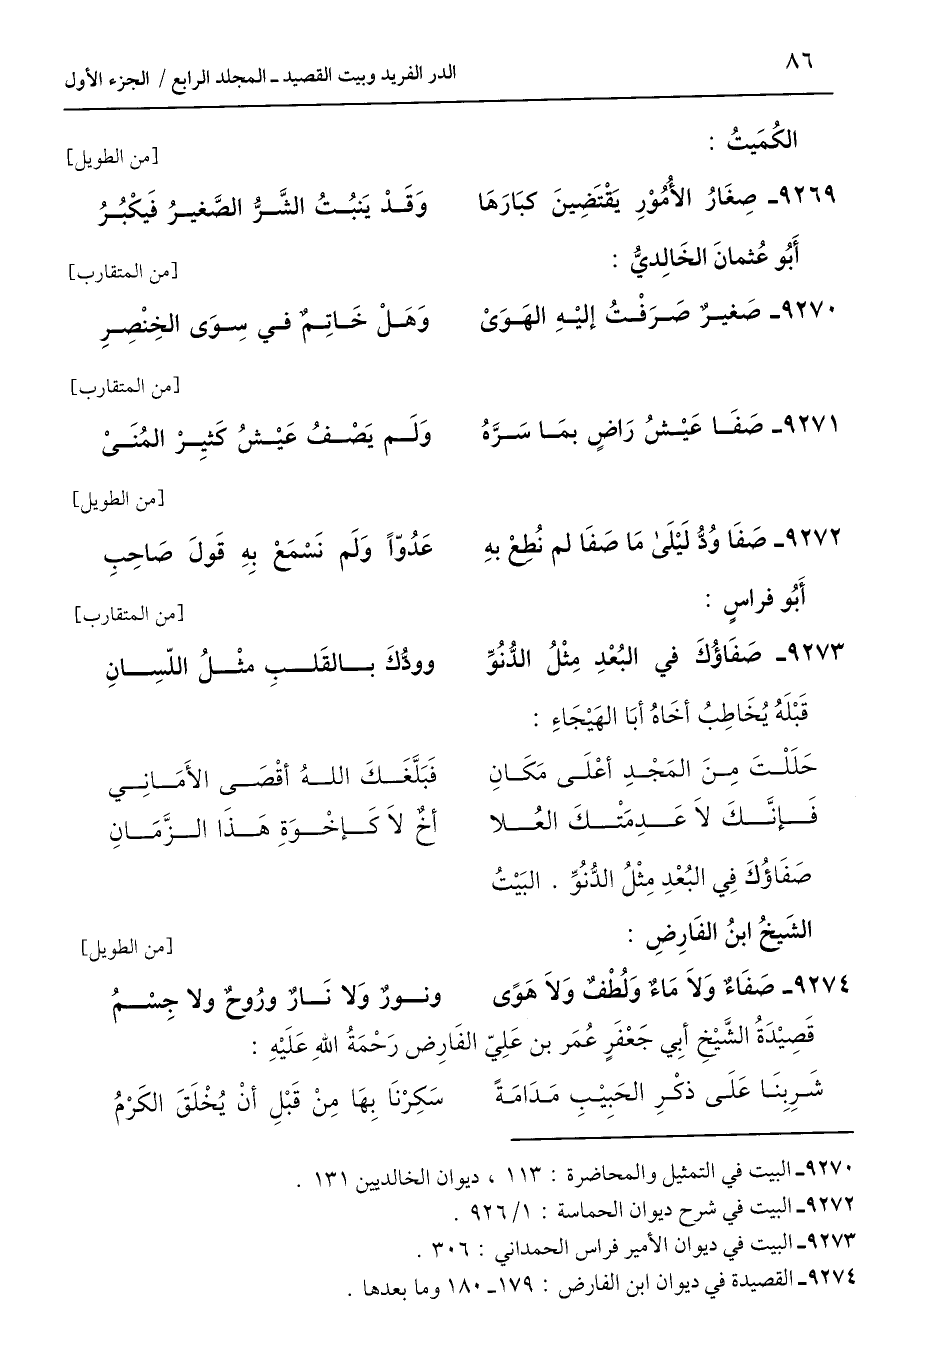 ٨٦
الدر الفريد وبيت القصيد ـ المجلد الرابع / الجزء الأول
الكُمَيتُ :
[من الطويل]
٩٢٦٩ـ صِغَارُ الأُمُوْرِ يَقْتَضِينَ كبَارَهَا وَقَدْ يَنبُتُ الشَّرُّ الصَّغيرُ فَيَكْبُرُ
أَبُو عُثمانَ الخَالِديُّ :
[من المتقارب]
٩٢٧٠ـ صَغيرٌ صَرَفْتُ إليْهِ الهَوَىْ وَهَلْ خَاتِمٌ في سِوَى الخِنْصِرِ
[من المتقارب]
٩٢٧١ـ صَفَا عَيْشُ رَاضٍ بمَا سَرَّهُ وَلَم يَصْفُ عَيْشُ كَثِيرْ المُنَىْ
[من الطويل]
٩٢٧٢ـ صَفَا وُدُّ لَيْلَىٰ مَا صَفَا لم نُطِعْ بهِ عَدُوّاً وَلَم نَسْمَعْ بِهِ قَولَ صَاحِبِ
أَبُو فراسٍ :
[من المتقارب]
٩٢٧٣ـ صَفَاؤُكَ في البُعْدِ مِثْلُ الدُّنُوِّ وودُّكَ بالقَلبِ مثْلُ اللّسانِ
قَبْلَهُ يُخَاطِبُ أخَاهُ أبَا الهَيْجَاءِ :
حَلَلْتَ مِنَ المَجْدِ أعْلَى مَكَانِ فَبَلَّغَكَ اللهُ أقْصَى الأَمَانِي
فَإنَّكَ لاَ عَدِمَتْكَ العُلا أخٌ لاَ كَإخْوَةِ هَذَا الزَّمَانِ
صَفَاؤُكَ فِي البُعْدِ مِثْلُ الدُّنُوِّ . البَيْتُ
الشَيخُ ابنُ الفَارِضِ :
[من الطويل]
٩٢٧٤ـ صَفَاءٌ وَلاَ مَاءٌ وَلُطْفٌ وَلاَ هَوًى ونورٌ وَلا نَارٌ ورُوحٌ ولا جِسْمُ
قَصِيْدَةُ الشَّيْخِ أبِي جَعْفَرٍ عُمَر بن عَلِيّ الفَارِض رَحْمَةُ اللهِ عَلَيْهِ :
شَرِبنَا عَلَى ذكْرِ الحَبِيْبِ مَدَامَةً سَكِرْنَا بِهَا مِنْ قَبْلِ أنْ يُخْلَقَ الكَرْمُ
٩٢٧٠ـ البيت في التمثيل والمحاضرة : ١١٣ ، ديوان الخالديين ١٣١ .
٩٢٧٢ـ البيت في شرح ديوان الحماسة : ١/ ٩٢٦ .
٩٢٧٣ـ البيت في ديوان الأمير فراس الحمداني : ٣٠٦ .
٩٢٧٤ـ القصيدة في ديوان ابن الفارض : ١٧٩ـ ١٨٠ وما بعدها .